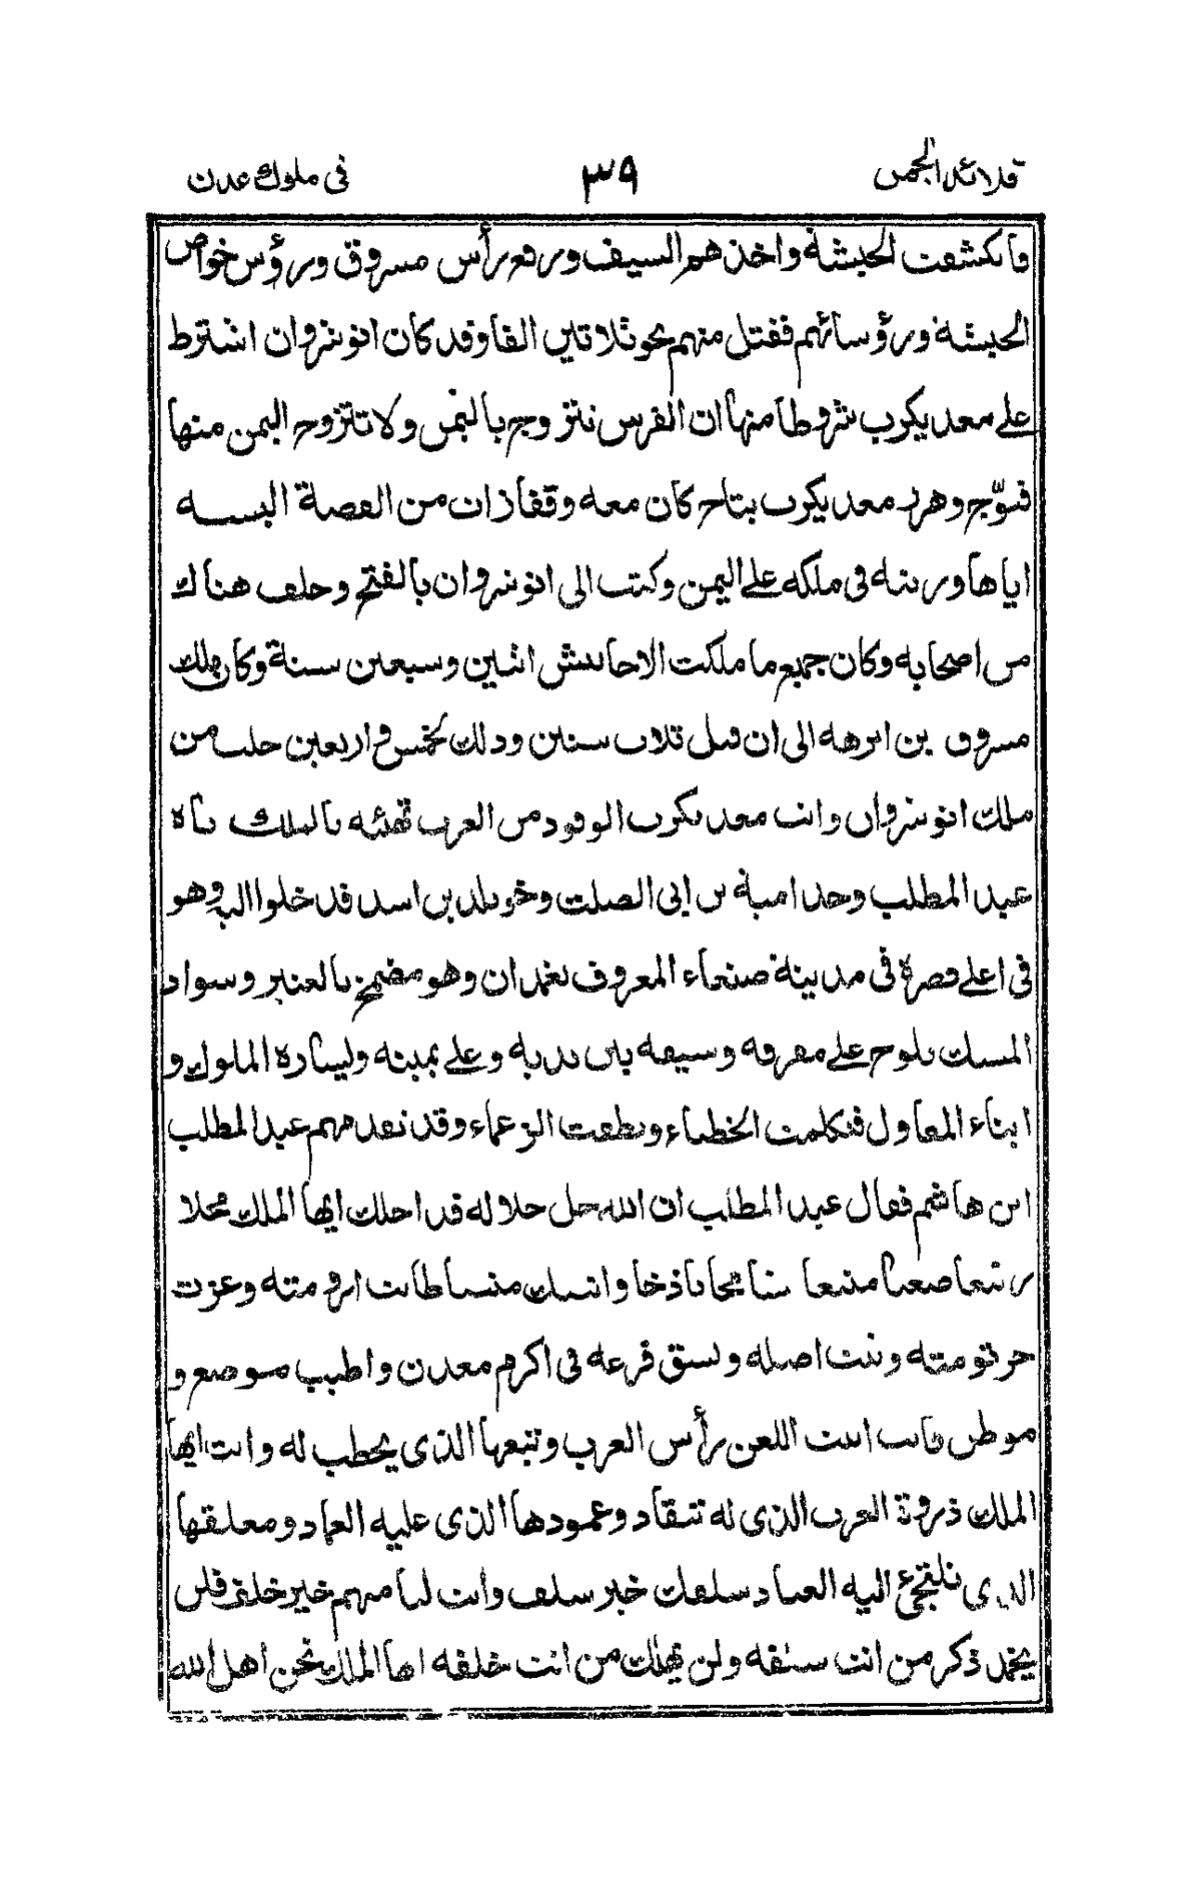 قلائد الجمن ٣٩ في ملوك عدن
فانكشفت الحبشة واخذهم السيف ورفع رأس مسروق ورؤس خواص
الحبشة ورؤسائهم فقتل منهم نحو ثلاثين الفا وقد كان انوشروان اشترط
على معديكرب شروطا منها ان الفرس تتزوج باليمن ولا تتزوج اليمن منها
فتوّج وهرز معديكرب بتاج كان معه وقفازان من الفضة البسه
اياها ورتبه في ملكه على اليمن وكتب الى انوشروان بالفتح وخلف هناك
من اصحابه وكان جميع ما ملكت الاحابش اثنين وسبعين سنة وكان هلك
مسروق بن ابرهه الى ان قتل ثلاث سنين وذلك لخمس واربعين خلت من
ملك انوشروان واتت معديكرب الوفود من العرب تهنئه بالملك
عبد المطلب وجد امية بن ابي الصلت وخويلد بن اسد قد خلوا اليه وهو
في اعلى قصره في مدينة صنعاء المعروف بغمدان وهو مضمخ بالعنبر وسواد
المسك يلوح على مفرقه وسيفه بين يديه وعلى يمينه وليساره الملوك و
ابناء المقاول فتكلمت الخطباء ونطقت الزعماء وقد تقدمهم عبد المطلب
ابن هاشم فقال عبد المطلب ان الله جل جلاله قد احلك ايها الملك محلا
رفيعا صعبا منيعا شامخا باذخا وانبتك منبتا طابت ارومته وعزت
جرثومته وثبت اصله وبسق فرعه في اكرم معدن واطيب موضع و
موطن فانت ابيت اللعن رأس العرب وتبعها الذي يخطب له وانت ايها
الملك ذروة العرب الذي له تنقاد وعمودها الذي عليه العماد ومعلقها
الذي تلتجئ اليه العباد سلفك خير سلف وانت لنا منهم خير خلف فلن
يخمد ذكر من انت سلفه ولن يهلك من انت خلفه ايها الملك نحن اهل الله